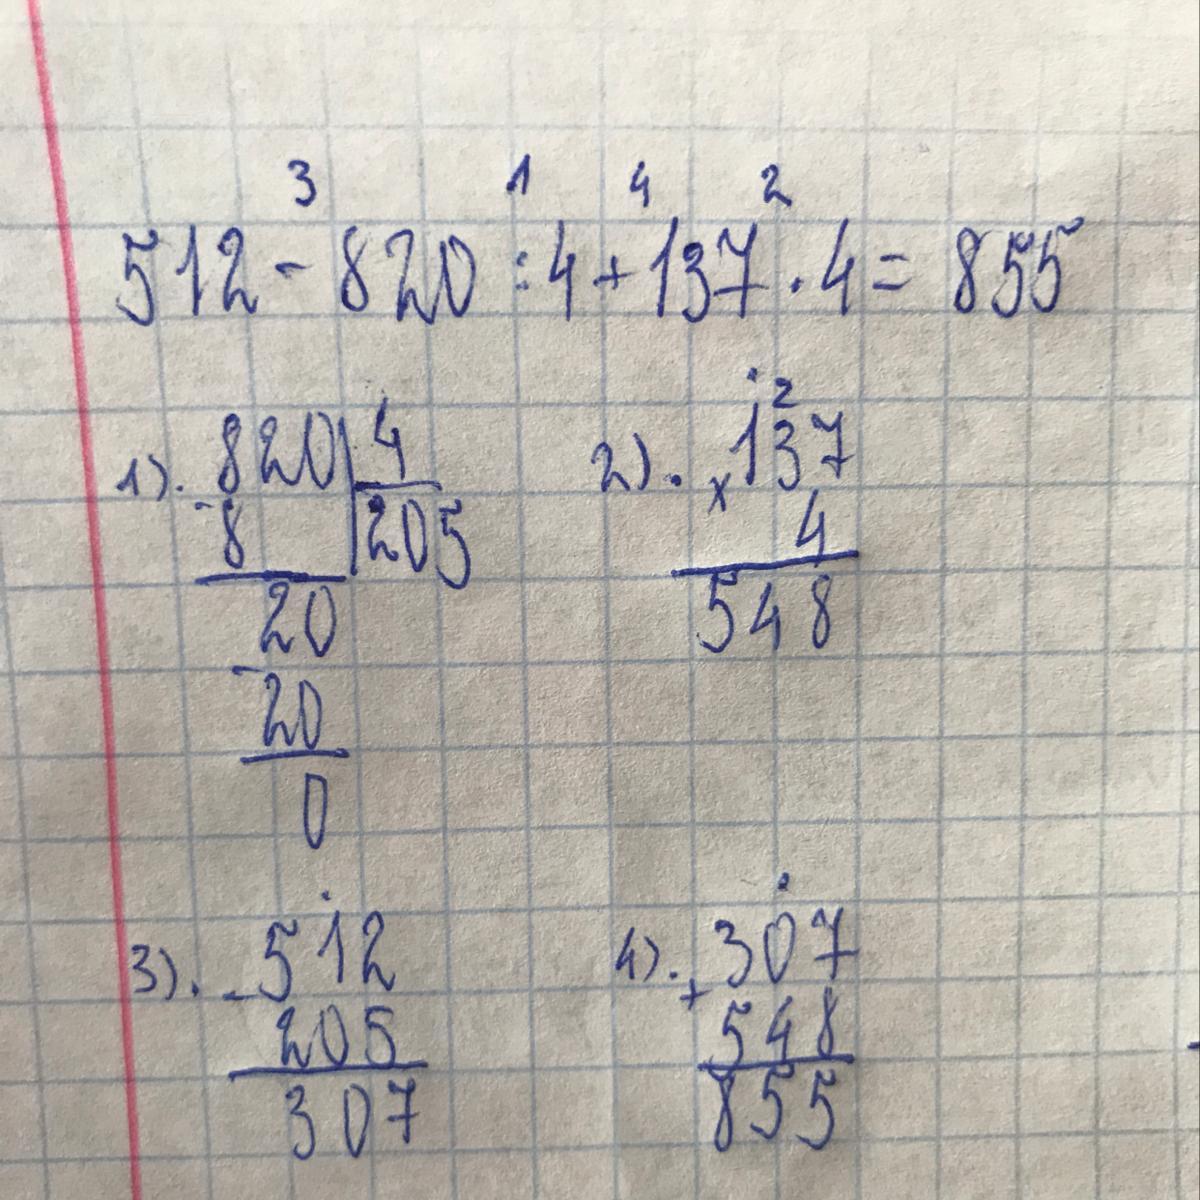 3 1 4 2
512 - 820 : 4 + 137 · 4 = 855
1). 820 | 4
- 8 | 205
20
- 20
0
2). · 2
× 137
4
548
3). - 512
205
307
4). + 307
548
855